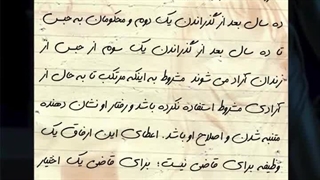 ده سال بعد از گذراندن یک دوم و محکومان به حبس
تا ده سال بعد از گذراندن یک سوم از حبس از
زندان آزاد می شوند مشروط به اینکه مرتکب تا به حال از
آزادی مشروط استفاده نکرده باشد و رفتار او نشان دهنده
متنبه شدن و اصلاح او باشد. اعطای این ارفاق یک
وظیفه برای قاضی نیست؛ برای قاضی یک اختیار